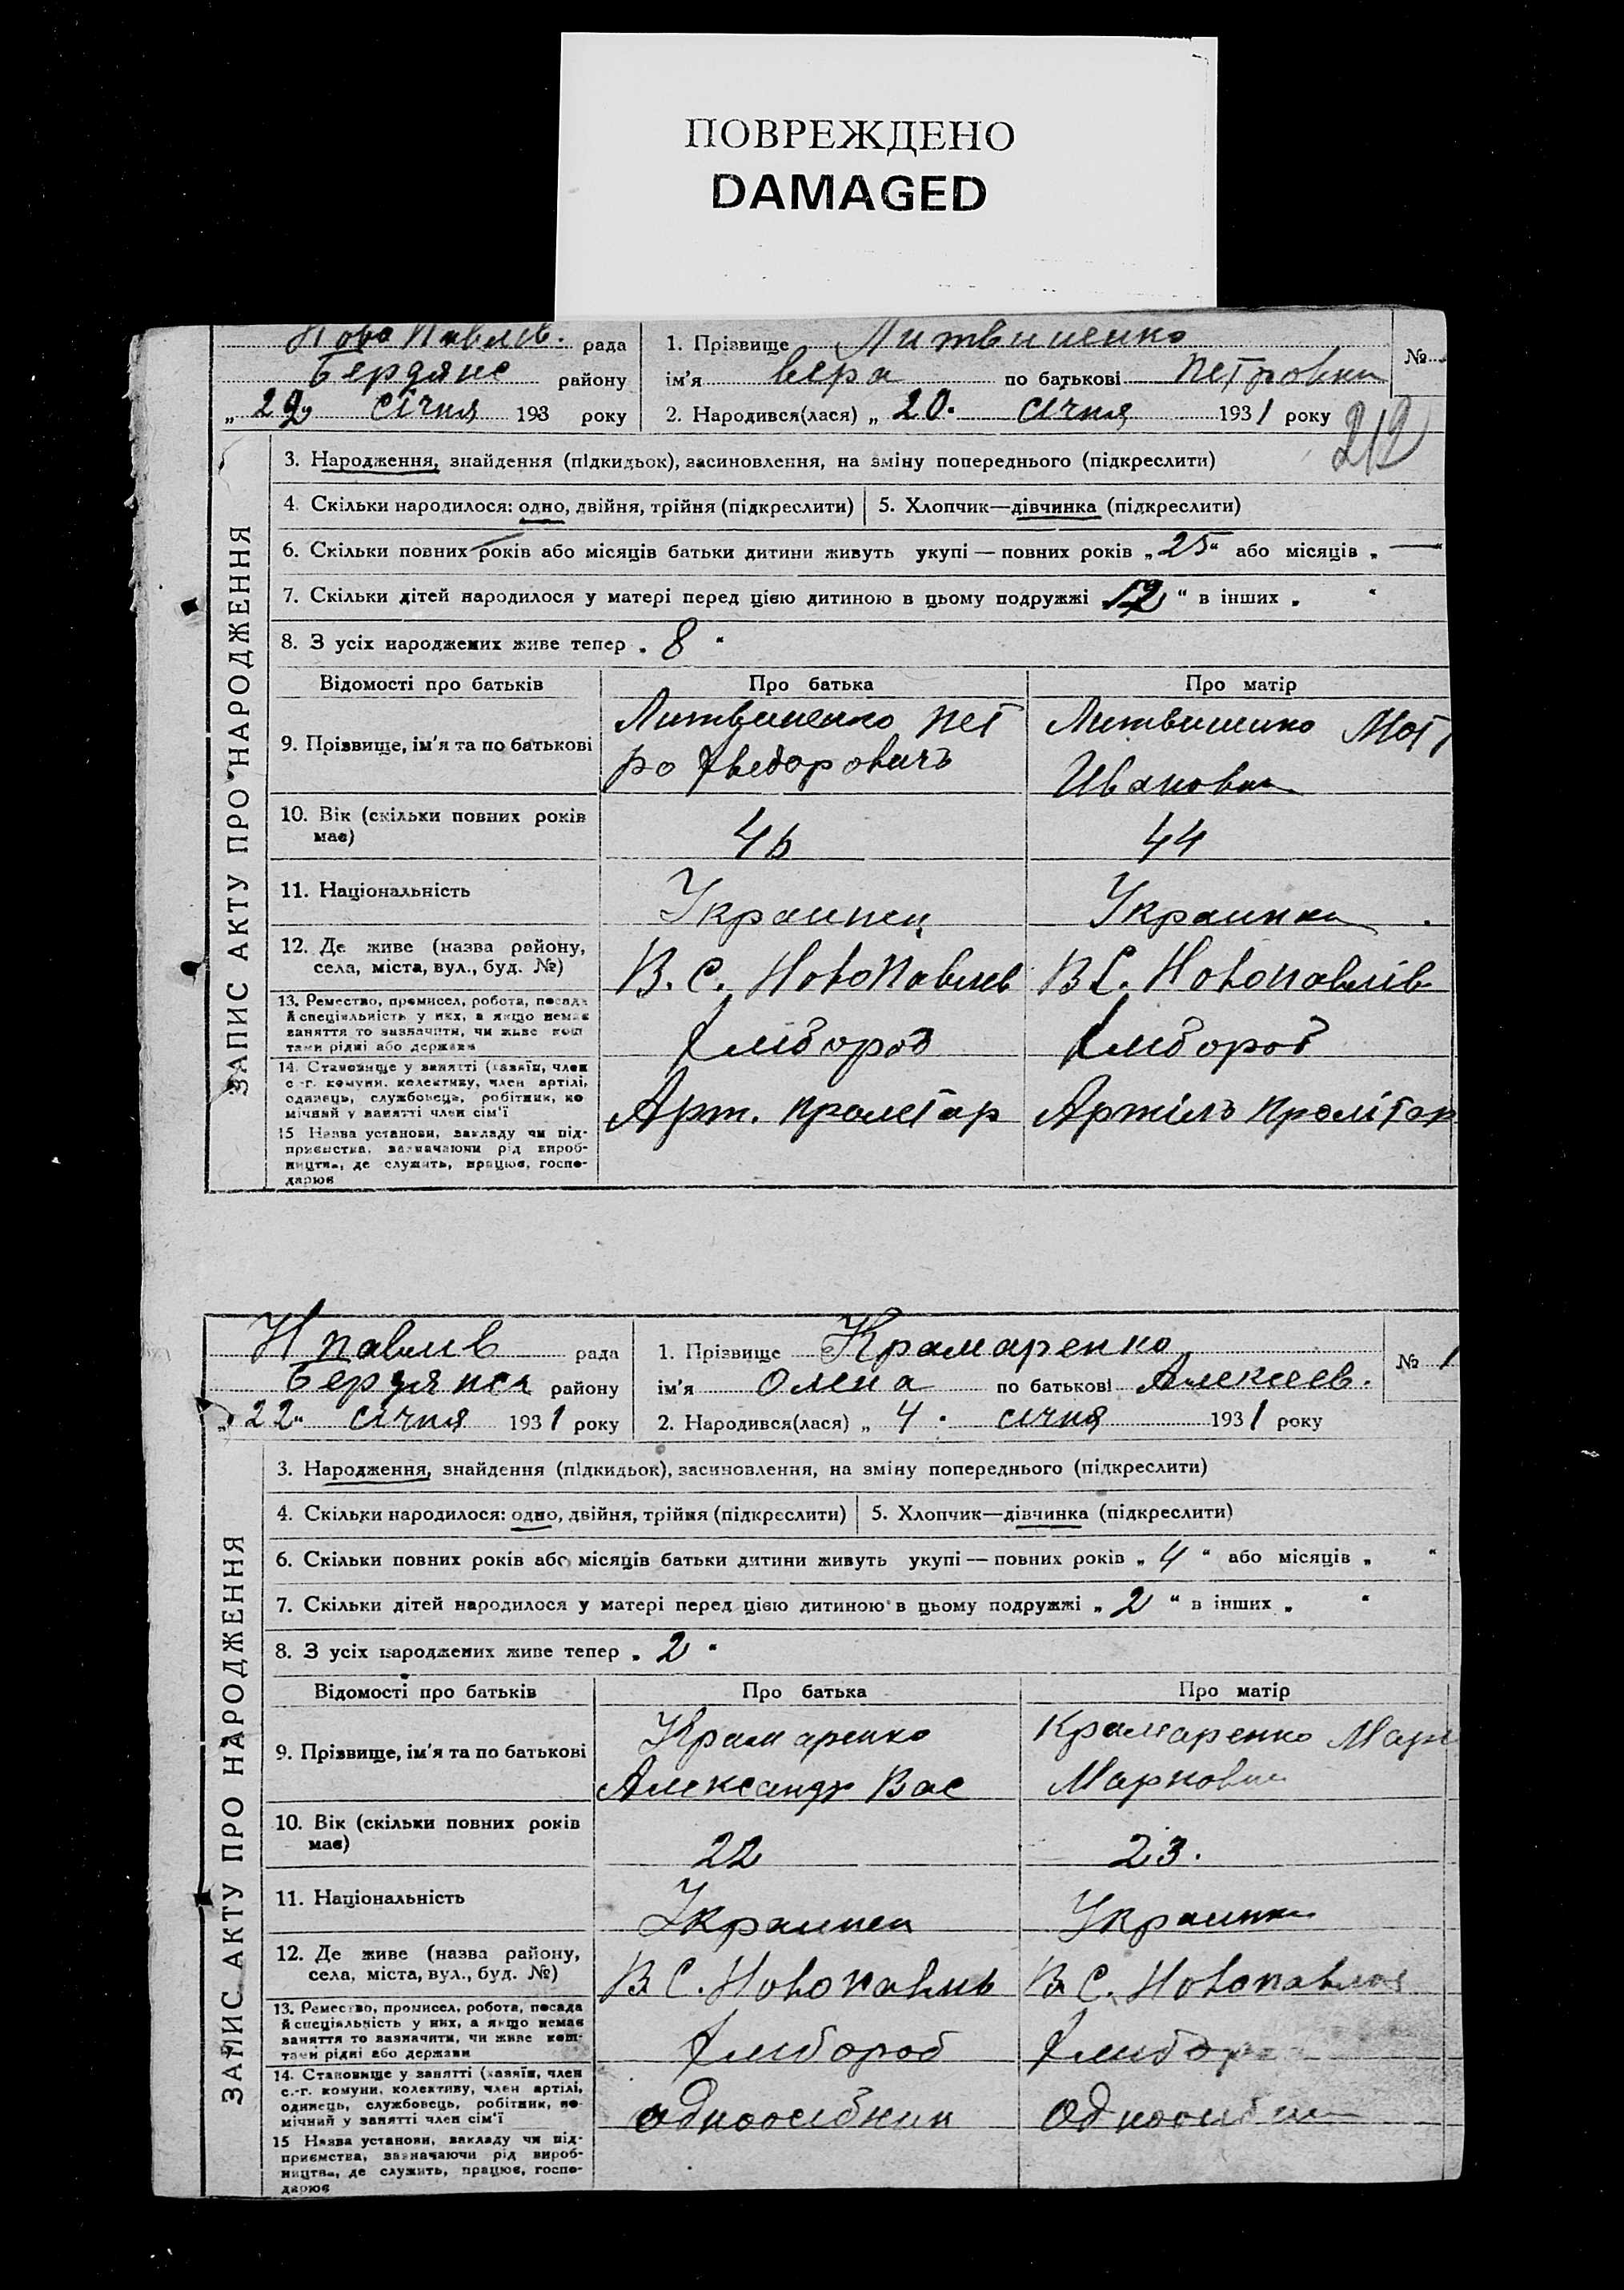 ПОВРЕЖДЕНО
DAMAGED
Ново Павлів. рада
Бердянс району
„ 22 „ січня 193 року
1. Прізвище Литвиненко
ім'я Вера по батькові Петровна
№
2. Народився(лася) „ 20. січня 1931 року
212
ЗАПИС АКТУ ПРО НАРОДЖЕННЯ
3. Народження, знайдення (підкидьок), засиновлення, на зміну попереднього (підкреслити)
4. Скільки народилося: одно, двійня, трійня (підкреслити) 5. Хлопчик—дівчинка (підкреслити)
6. Скільки повних років або місяців батьки дитини живуть укупі — повних років „ 25 “ або місяців „ — “
7. Скільки дітей народилося у матері перед цією дитиною в цьому подружжі 12 “ в інших „ “
8. З усіх народжених живе тепер „ 8 “
Відомості про батьків Про батька Про матір
9. Прізвище, ім'я та по батькові
Литвиненко Пет
ро Фведоровичъ
Литвиненко Мот
Ивановна
10. Вік (скільки повних років
має)
44
11. Національність Украинец Украинка
12. Де живе (назва району,
села, міста, вул., буд. №)
В. С. НовоПавлів В С. Новопавлів
13. Ремество, промисел, робота, посада
й спеціяльність у них, а якщо немає
заняття то зазначити, чи живе кош
тами рідні або держави
Хлібороб Хлібороб
14. Становище у занятті (хазяїн, член
с.-г. комуни, колективу, член артілі,
одинець, службовець, робітник, по
мічний у занятті член сім'ї
Арт. Пролетар Артіль Пролітар
15 Назва установи, закладу чи під-
приємства, зазначаючи рід вироб-
ництва, де служить, працює, госпо-
дарює
Н Павлив рада
Бердянск району
„ 22 „ січня 1931 року
1. Прізвище Крамаренко
ім'я Олена по батькові Алексеев.
№ 1
2. Народився(лася) „ 4. січня 1931 року
ЗАПИС АКТУ ПРО НАРОДЖЕННЯ
3. Народження, знайдення (підкидьок), засиновлення, на зміну попереднього (підкреслити)
4. Скільки народилося: одно, двійня, трійня (підкреслити) 5. Хлопчик—дівчинка (підкреслити)
6. Скільки повних років або місяців батьки дитини живуть укупі — повних років „ 4 “ або місяців „ “
7. Скільки дітей народилося у матері перед цією дитиною в цьому подружжі „ 2 “ в інших „ “
8. З усіх народжених живе тепер „ 2 “
Відомості про батьків Про батька Про матір
9. Прізвище, ім'я та по батькові
Крамаренко
Александр Вас
Крамаренко Мари
Марковна
10. Вік (скільки повних років
має)
22 23.
11. Національність Украинец Украинка
12. Де живе (назва району,
села, міста, вул., буд. №)
В С. Новопавлів В С. Новопавлів
13. Ремество, промисел, робота, посада
й спеціяльність у них, а якщо немає
заняття то зазначити, чи живе кош-
тами рідні або держави
Хлібороб Хлібороб
14. Становище у занятті (хазяїн, член
с.-г. комуни, колективу, член артілі,
одинець, службовець, робітник, по
мічний у занятті член сім'ї
Одноосібник Одноосібни
15 Назва установи, закладу чи під-
приємства, зазначаючи рід вироб-
ництва, де служить, працює, госпо-
дарює